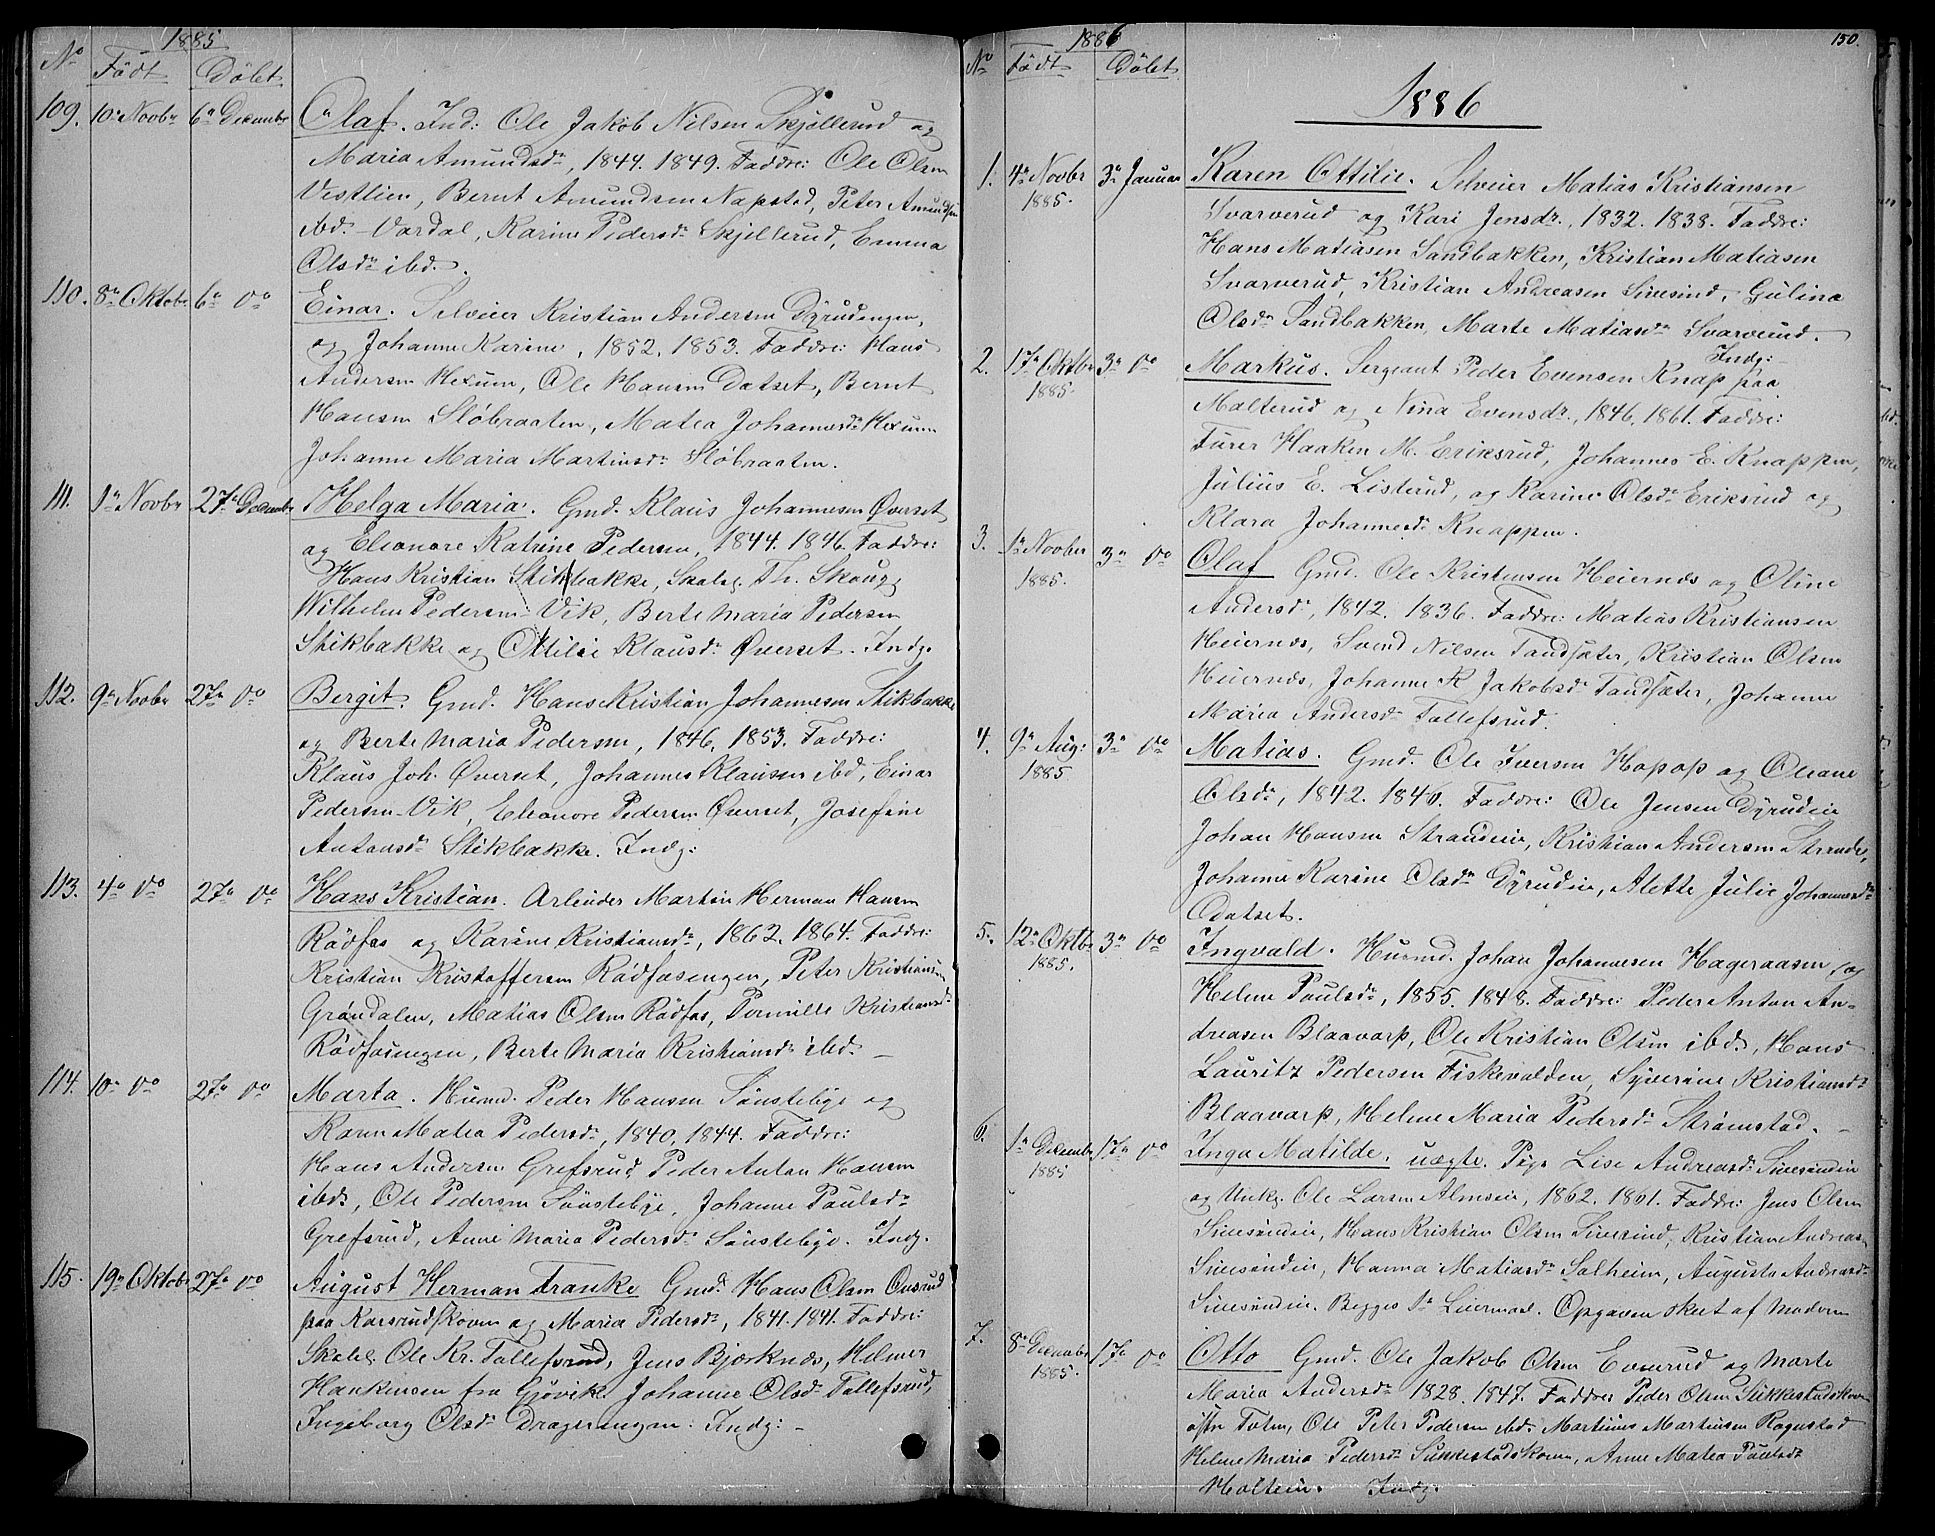 1885
No Født Døbt
109. 10de Novbr 6te Decembr Olaf. Ind: Ole Jakob Nilsen Skjellerud og
Maria Amundsdr, 1844. 1849. Faddre: Ole Olsen
Vestlien, Bernt Amundsen Napstad, Peter Amundsen
ibd. Vardal, Karine Pedersdr Skjellerud, Emma
Olsdr ibd.
110. 8de Oktobr 6te do Einar. Selveier Kristian Andersen Dyrudengen,
og Johanne Karine, 1852. 1853. Faddre: Hans
Andersen Hexum, Ole Hansen Datset, Bernt
Hansen Slöbraaten, Matea Johannesdr Hexum
Johanne Maria Martinsdr Slöbraaten.
111. 1ste Novbr 27de Decembr Helga Maria. Gmd. Klaus Johannesen Øverset
og Eleonore Katrine Pedersen, 1844. 1846. Faddre:
Hans Kristian Stikbakke, Skolel. Th. Skaug,
Wilhelm Pedersen Vik, Berte Maria Pedersen
Stikbakke og Ottilie Klausdr Øverset. Indg.
112. 9de Novbr 27de do Bergit. Gmd. Hans Kristian Johannesen Stikbakke
og Berte Maria Pedersen, 1846, 1853. Faddre:
Klaus Joh. Øverset, Johannes Klausen ibd, Einar
Pedersen Vik, Eleonore Pedersen Øverset, Josefine
Antonsdr Stikbakke. Indg:
113. 4de do 27de do Hans Kristian. Arbeider Martin Herman Hansen
Rødfos og Karine Kristiansdr, 1862. 1864. Faddre:
Kristian Kristoffersen Rødfosengen, Peter Kristiansen
Grøndalen, Matias Olsen Rødfos, Pernille Kristiansdr
Rødfosengen, Berte Maria Kristiansdr ibd.
114. 10de do 27de do Marta. Husmd. Peder Hansen Sønstebye og
Karen Matea Pedersdr, 1840, 1844. Faddre:
Hans Andersen Grefsrud, Peder Anton Hansen
ibd., Ole Pedersen Sønstebye, Johanne Paulsdr
Grefsrud, Anne Maria Pedersdr Sønstebye. Indg.
115. 19de Oktobr 27de do August Herman Franke Gmd. Hans Olsen Onsrud
paa Karsrudskoven og Maria Pedersdr, 1841. 1841. Faddre:
Skolel. Ole Kr. Tollefsrud, Jens Bjørknes, Helmer
Haakensen fra Gjøvik, Johanne Olsdr Tollefsrud,
Ingeborg Olsdr Dragerengen. Indg:
1886 150.
No Født Døbt
1886
1. 4de Novbr 1885. 3de Januar Karen Ottilie. Selveier Matias Kristiansen
Svarverud og Kari Jensdr, 1832. 1838. Faddre:
Hans Matiasen Sandbakken, Kristian Matiasen
Svarverud, Kristian Andreasen Sivesind, Gulina
Olsdr Sandbakken, Marte Matiasdr Svarverud.
Indg:
2. 17de Oktbr 1885. 3de do Markus. Sergeant Peder Evensen Knap paa
Malterud og Nina Evensdr, 1846, 1861. Faddre:
Furer Haaken M. Eriksrud, Johannes E. Knappen,
Julius E. Listerud, og Karine Olsdr Eriksrud og
Klara Johannesdr Knappen.
3. 1ste Novbr 1885. 3de do Olaf Gmd. Ole Kristensen Heiernes og Oline
Andersdr, 1842. 1836. Faddre: Matias Kristiansen
Heiernes, Svend Nilsen Tandsæter, Kristian Olsen
Heiernes, Johanne K Jakobsdr Tandsæter, Johanne
Maria Andersdr Tollefsrud.
4. 9de Aug: 1885 3de do Matias. Gmd. Ole Iversen Hopop og Oleane
Olsdr, 1842. 1846. Faddre: Ole Jensen Dyrudeie
Johan Hansen Strandeie, Kristian Andersen Strande,
Johanne Karine Olsdr Dyrudeie, Alette Julie Johannesdr
Odatset.
5. 12te Oktbr 1885. 3de do Ingvald. Husmd. Johan Johannesen Hageraasen og
Helene Paulsdr, 1855. 1848. Faddre: Peder Anton An-
dreasen Blaavarp, Ole Kristian Olsen ibd., Hans
Lauritz Pedersen Fiskevolden, Syverine Kristiansdr
Blaavarp, Helene Maria Pedersdr Strømstad.
6. 1ste Decembr 1885 17de do Inga Matilde. uægte. Pige Lise Andreasdr Sivesindeie
og Unkg. Ole Larsen Almseie, 1862. 1861. Faddre: Jens Olsen
Sivesindeie, Hans Kristian Olsen Sivesind, Kristian Andreasen
Sivesindeie, Hanna Matiasdr Solheim, Augusta Andreasdr
Sivesindeie. Begges 1ste Leiermaal. Opgaven sket af Moderen
7. 8de Decembr 1885. 17de do Otto Gmd. Ole Jakob Olsen Evenrud og Marte
Maria Andersdr 1828. 1847. Faddre: Peder Olsen Sukkestadskoven
østre Toten, Ole Peter Pedersen ibd. Martinus Martinsen Rognstad
Helene Maria Pedersdr Sukkestadskoven, Anne Matea Paulsdr
Holteie. Indg.